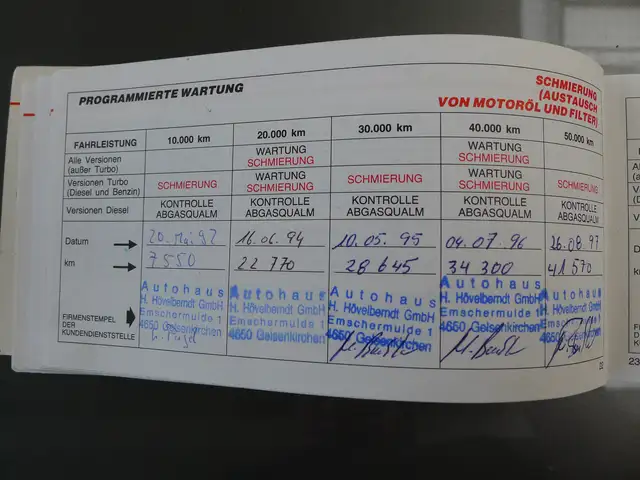 PROGRAMMIERTE WARTUNG
SCHMIERUNG
(AUSTAUSCH
VON MOTORÖL UND FILTER)
FAHRLEISTUNG 10.000 km 20.000 km 30.000 km 40.000 km 50.000 km
Alle Versionen
(außer Turbo)
WARTUNG
SCHMIERUNG
WARTUNG
SCHMIERUNG
Versionen Turbo
(Diesel und Benzin)
SCHMIERUNG
WARTUNG
SCHMIERUNG
SCHMIERUNG
WARTUNG
SCHMIERUNG
SCHMIERUNG
Versionen Diesel
KONTROLLE
ABGASQUALM
KONTROLLE
ABGASQUALM
KONTROLLE
ABGASQUALM
KONTROLLE
ABGASQUALM
KONTROLLE
ABGASQUALM
Datum 20. Mai 92 16.06.94 10.05.95 04.07.96 26.08.97
km 7550 22 770 28 645 34 300 41 570
FIRMENSTEMPEL
DER
KUNDENDIENSTSTELLE
Autohaus
H. Hövelberndt GmbH
Emschermulde 1
4650 Gelsenkirchen
Autohaus
H. Hövelberndt GmbH
Emschermulde 1
4650 Gelsenkirchen
Autohaus
H. Hövelberndt GmbH
Emschermulde 1
4650 Gelsenkirchen
Autohaus
H. Hövelberndt GmbH
Emschermulde 1
4650 Gelsenkirchen
Autohaus
H. Hövelberndt GmbH
Emschermulde 1
4650 Gelsenkirchen
23